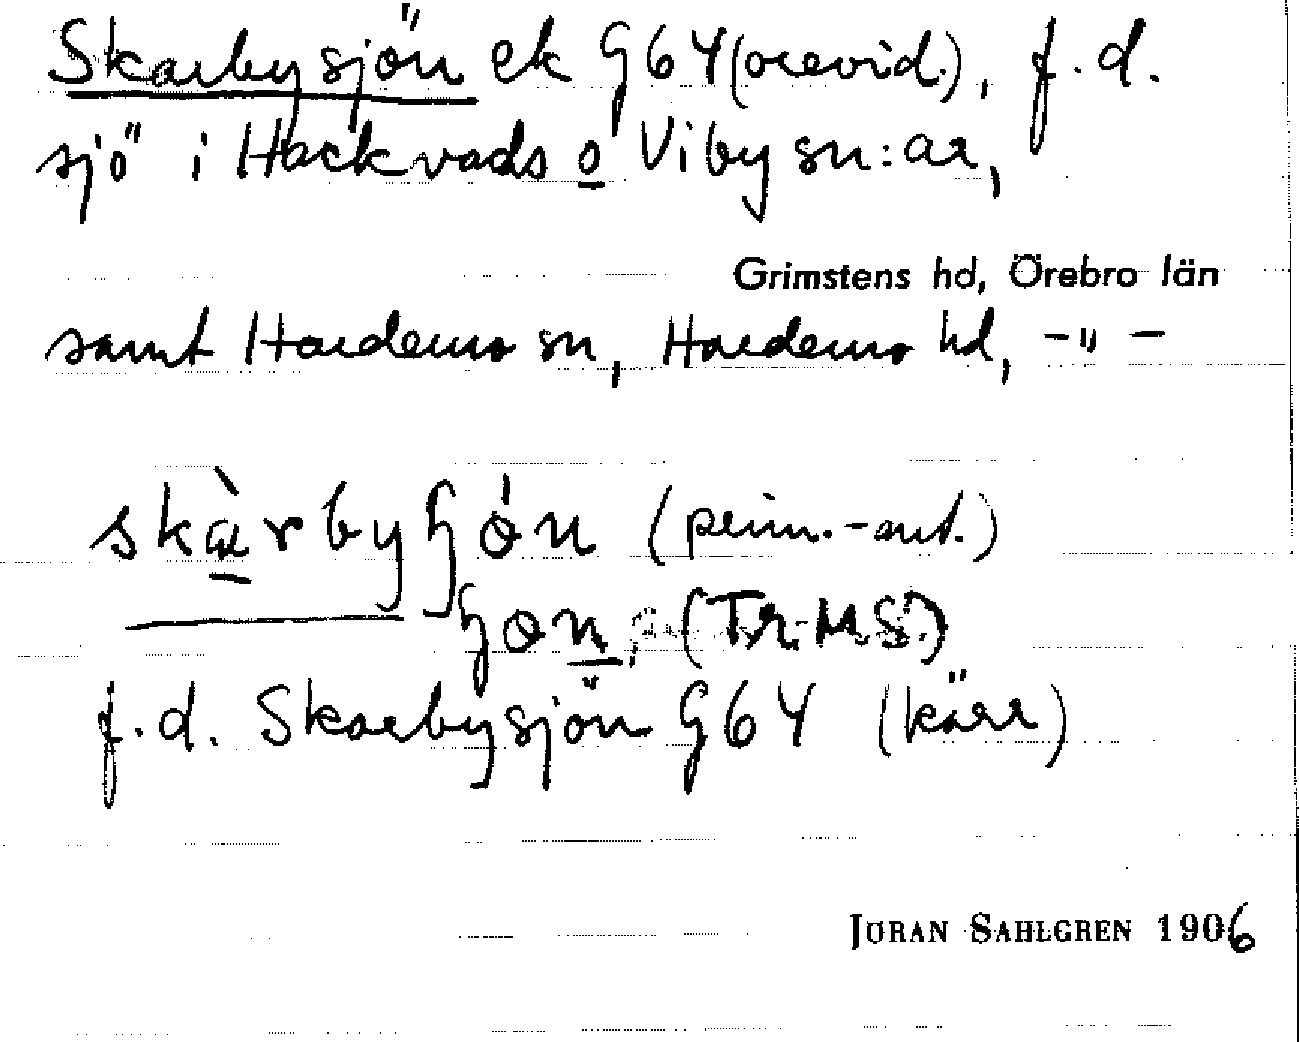 Skarbysjön ek G64 (orevid.), f.d.
sjö i Hackvads o Viby sn:ar,
Grimstens hd, Örebro län
samt Hardemo sn, Hardemo hd, -"-
skàrbyɧón (prim.-ant.)
ɧon, (Tr.MS.)
f.d. Skarbysjön G64 (kärr)
JÖRAN SAHLGREN 1906